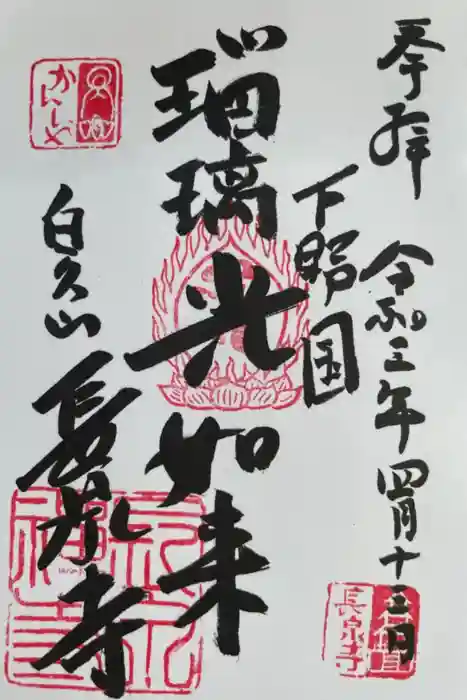 奉拝
令和三年四月十三日
下野国
瑠璃光如来
白久山
長泉寺
かんしゃ
長泉寺